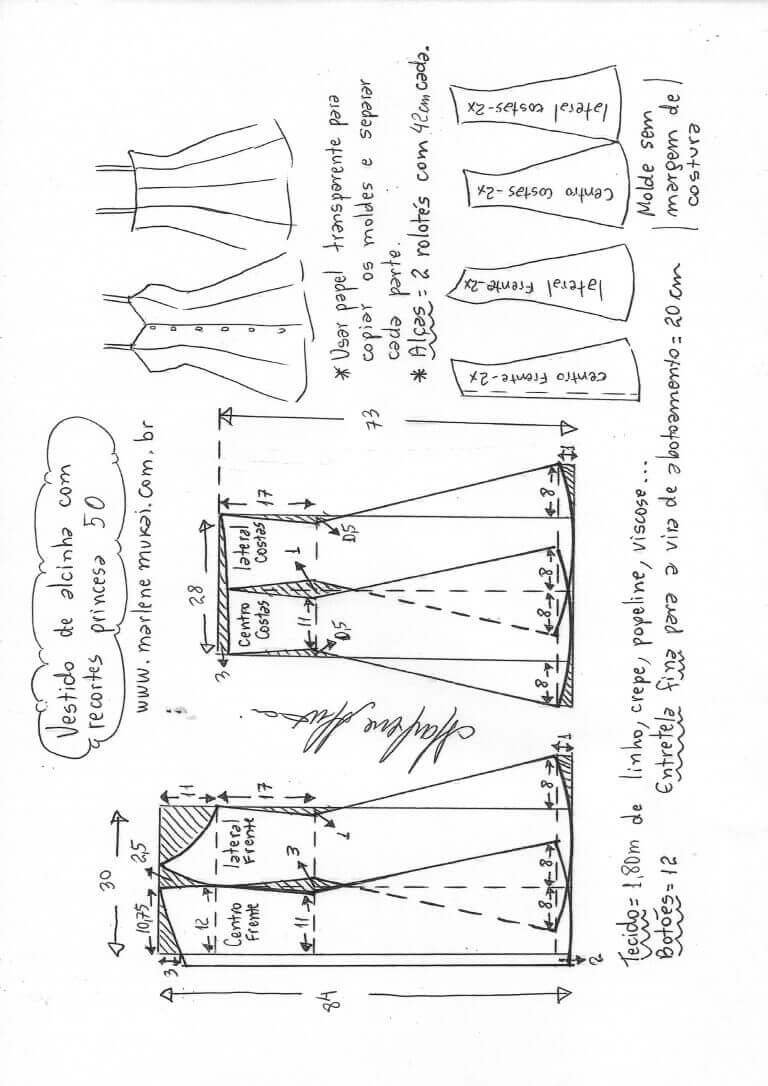 Vestido de alcinha com
recortes princesa 50
www.marlenemukai.com.br
* Usar papel transparente para
copiar os moldes e separar
cada parte.
* Alças = 2 rolotés com 42cm cada.
30
10,75
2,5
3
11
17
12
Centro
Frente
lateral
Frente
11
3
1
84
8
8
8
1
2
Marlene Mukai
28
3
17
73
Centro
Costas
lateral
Costas
11
1
0,5
0,5
8
8
8
8
1
Centro Frente-2x
lateral Frente-2x
Centro Costas-2x
lateral costas-2x
Molde sem
margem de
costura
Tecido = 1,80m de linho, crepe, popeline, viscose...
Botões = 12
Entretela fina para a vira de abotoamento = 20 cm